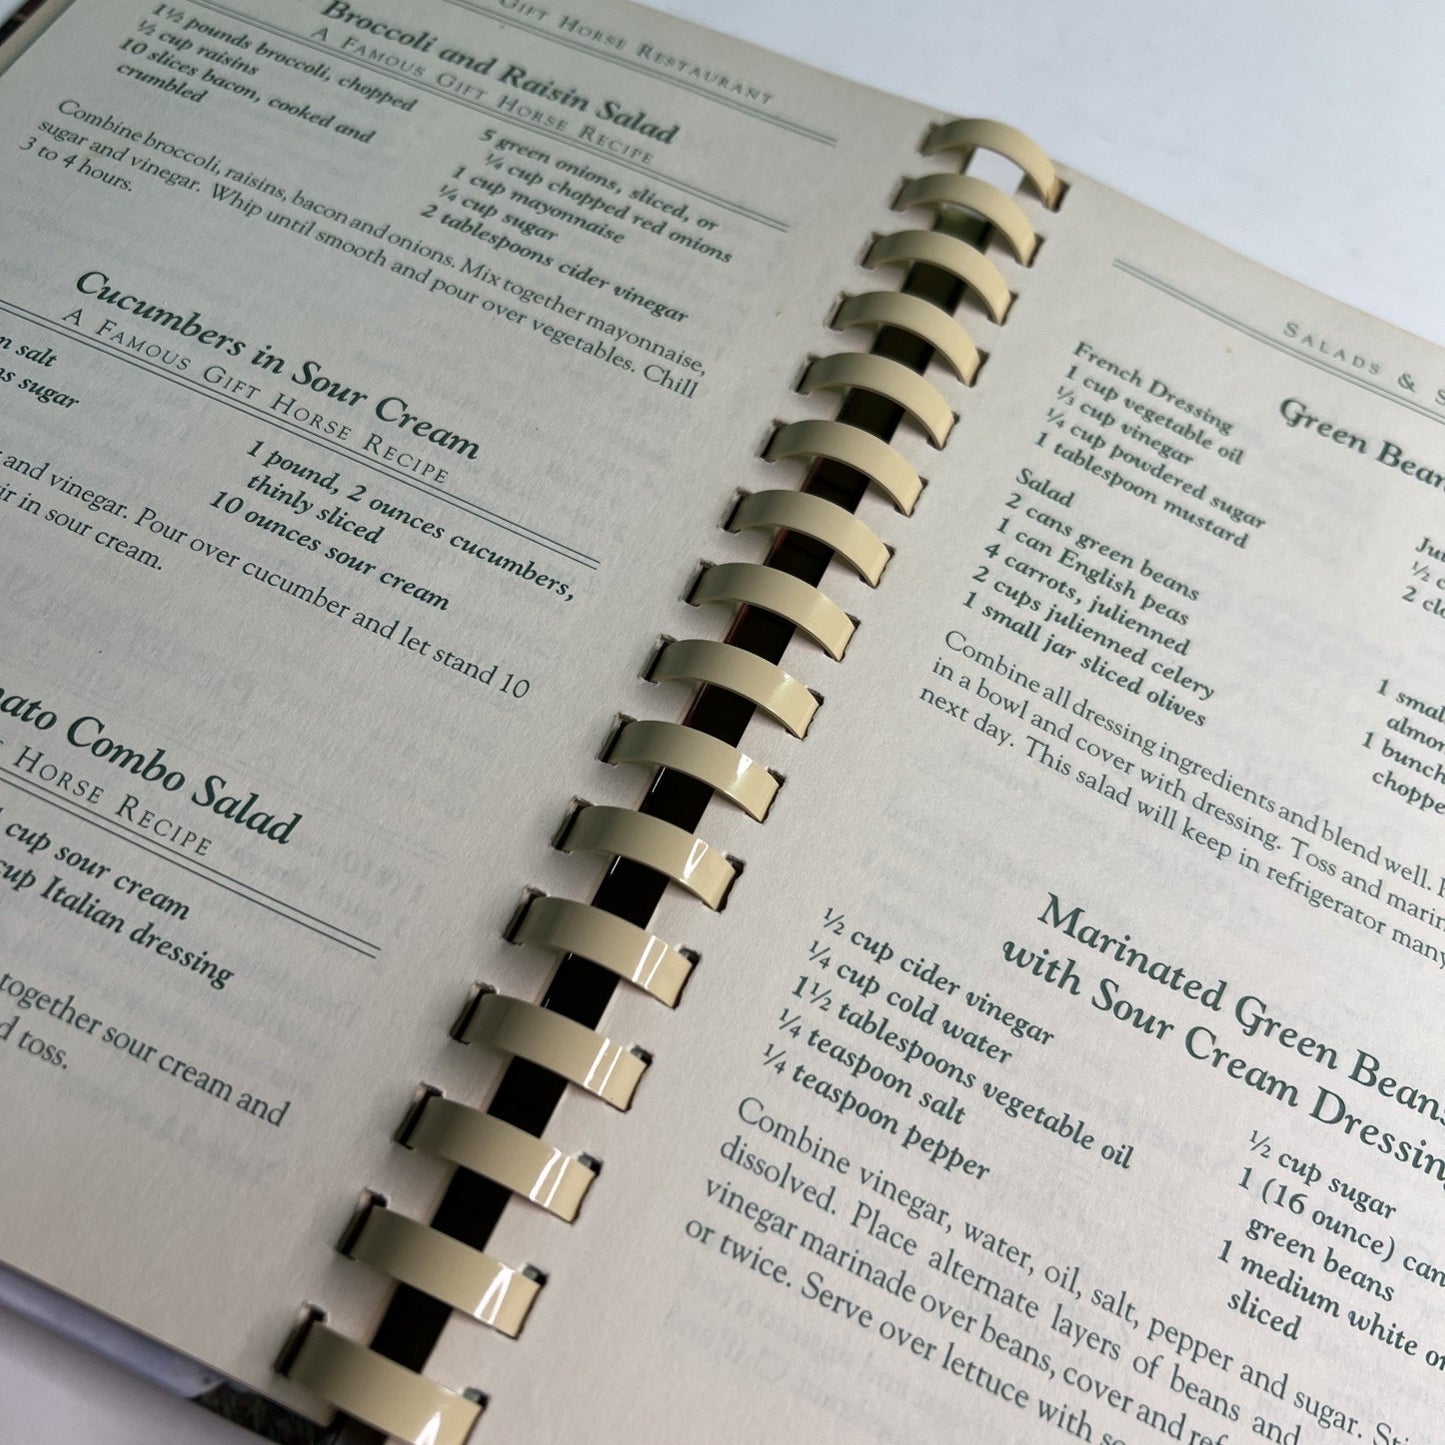 Gift Horse Restaurant
Broccoli and Raisin Salad
A Famous Gift Horse Recipe
1½ pounds broccoli, chopped
½ cup raisins
10 slices bacon, cooked and
crumbled
5 green onions, sliced, or
¼ cup chopped red onions
1 cup mayonnaise
¼ cup sugar
2 tablespoons cider vinegar
Combine broccoli, raisins, bacon and onions. Mix together mayonnaise,
sugar and vinegar. Whip until smooth and pour over vegetables. Chill
3 to 4 hours.
Cucumbers in Sour Cream
A Famous Gift Horse Recipe
salt
sugar
1 pound, 2 ounces cucumbers,
thinly sliced
10 ounces sour cream
and vinegar. Pour over cucumber and let stand 10
in sour cream.
Combo Salad
Horse Recipe
cup sour cream
cup Italian dressing
together sour cream and
toss.
Salads &
Green
French Dressing
1 cup vegetable oil
⅓ cup vinegar
¼ cup powdered sugar
1 tablespoon mustard
Salad
2 cans green beans
1 can English peas
4 carrots, julienned
2 cups julienned celery
1 small jar sliced olives
½
2
1
1 bunch
Combine all dressing ingredients and blend well.
in a bowl and cover with dressing. Toss and
next day. This salad will keep in refrigerator many
Marinated Green Beans
with Sour Cream Dressing
½ cup cider vinegar
¼ cup cold water
1½ tablespoons vegetable oil
¼ teaspoon salt
¼ teaspoon pepper
½ cup sugar
1 (16 ounce) can
green beans
1 medium white
sliced
Combine vinegar, water, oil, salt, pepper and sugar.
dissolved. Place alternate layers of beans and
vinegar marinade over beans, cover and
or twice. Serve over lettuce with